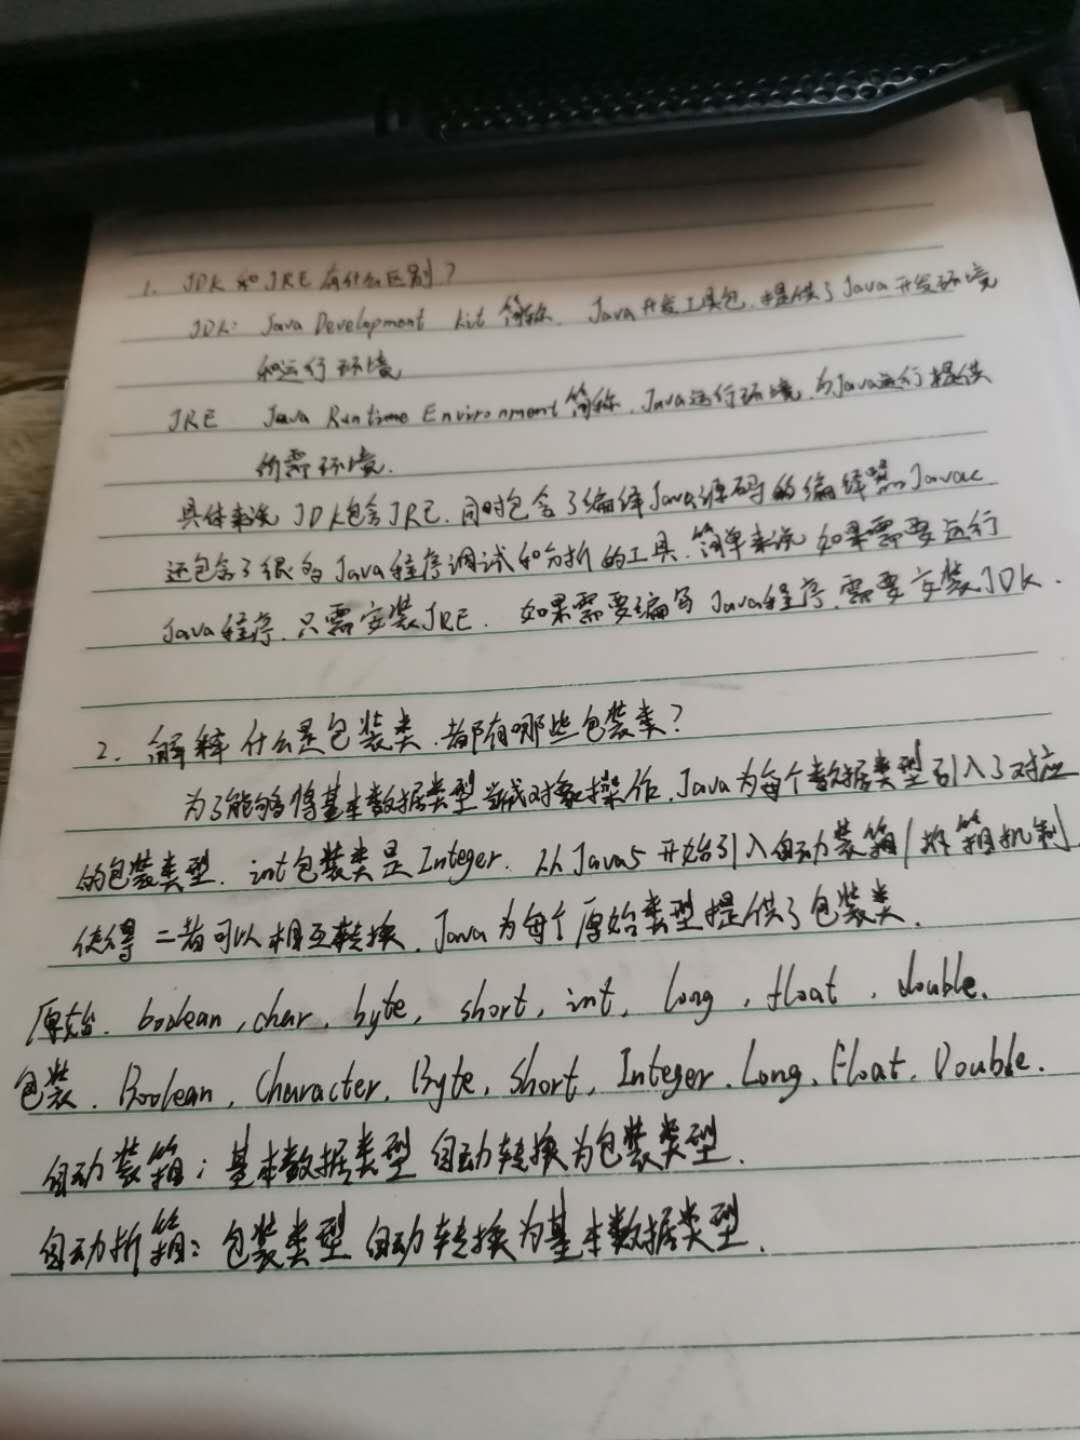 1. JDK 和 JRE 有什么区别?
JDK: Java Development Kit 简称. Java 开发工具包. 提供了 Java 开发环境
和运行环境
JRE Java Runtime Environment 简称. Java运行环境. 为Java运行提供
所需环境.
具体来说 JDK包含JRE. 同时包含了编译Java源码的编译器Javac
还包含了很多Java程序调试和分析的工具. 简单来说 如果需要运行
Java程序. 只需安装JRE. 如果需要编写 Java程序. 需要安装JDK.
2. 解释什么是包装类. 都有哪些包装类?
为了能够将基本数据类型当成对象操作. Java为每个数据类型引入了对应
的包装类型. int包装类是Integer. 从Java5开始引入自动装箱/拆箱机制
使得二者可以相互转换. Java为每个原始类型提供了包装类.
原始. boolean, char, byte, short, int, long, float, double.
包装. Boolean, Character, Byte, Short, Integer. Long, Float, Double.
自动装箱: 基本数据类型 自动转换为包装类型.
自动折箱: 包装类型 自动转换为基本数据类型.